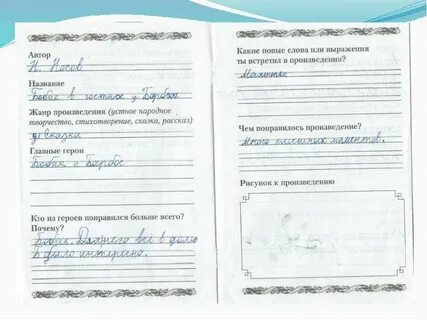 Автор
Н. Носов
Название
Бобик в гостях у Барбоса.
Жанр произведения (устное народное
творчество, стихотворение, сказка, рассказ)
сказка
Главные герои
Бобик и Барбос
Кто из героев понравился больше всего?
Почему?
Бобик.
всё в
было интересно.
Какие новые слова или выражения
ты встретил в произведении?
Маятник
Чем понравилось произведение?
Много смешных моментов.
Рисунок к произведению